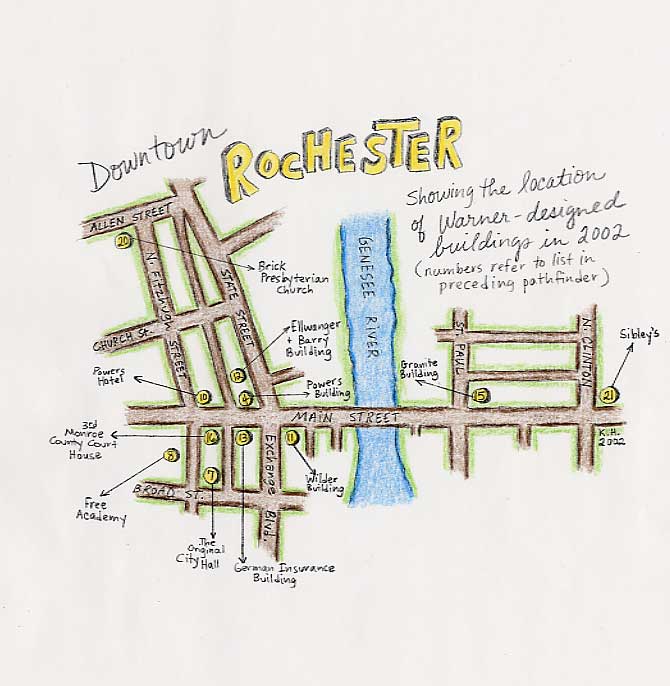 Downtown
ROCHESTER
Showing the location
of Warner-designed
buildings in 2002
(numbers refer to list in
preceding pathfinder)
ALLEN STREET
20
N. FITZHUGH STREET
STATE STREET
Brick
Presbyterian
Church
GENESEE RIVER
CHURCH St.
Ellwanger
+ Barry
Building
12
ST. PAUL
N. CLINTON
Sibley's
Powers
Hotel
10
4
Powers
Building
Granite
Building
15
21
MAIN STREET
3rd
Monroe
County Court
House
16
13
Exchange Blvd.
11
K.H.
2002
8
7
Wilder
Building
BROAD ST.
Free
Academy
The
Original
City Hall
German Insurance
Building